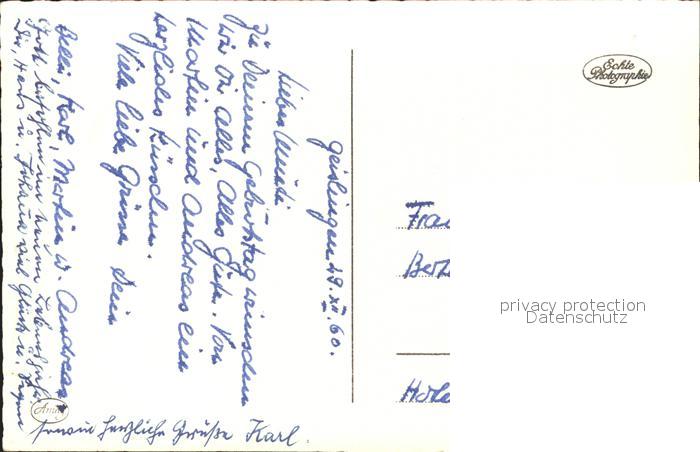 Geislingen 29. XII. 60.
Liebe
Zu Deinem Geburtstag wünschen
wir Dir alles, alles Gute. Von
Martin und Andreas ein
herzliches Küsschen.
Viele liebe Grüsse Dein
Karl, Martin u. Andreas
Gott
Dir, Hans u. viel Glück u. Segen
sowie herzliche Grüße Karl.
Echte
Photographie
Fra
Ber
Hohe
privacy protection
Datenschutz